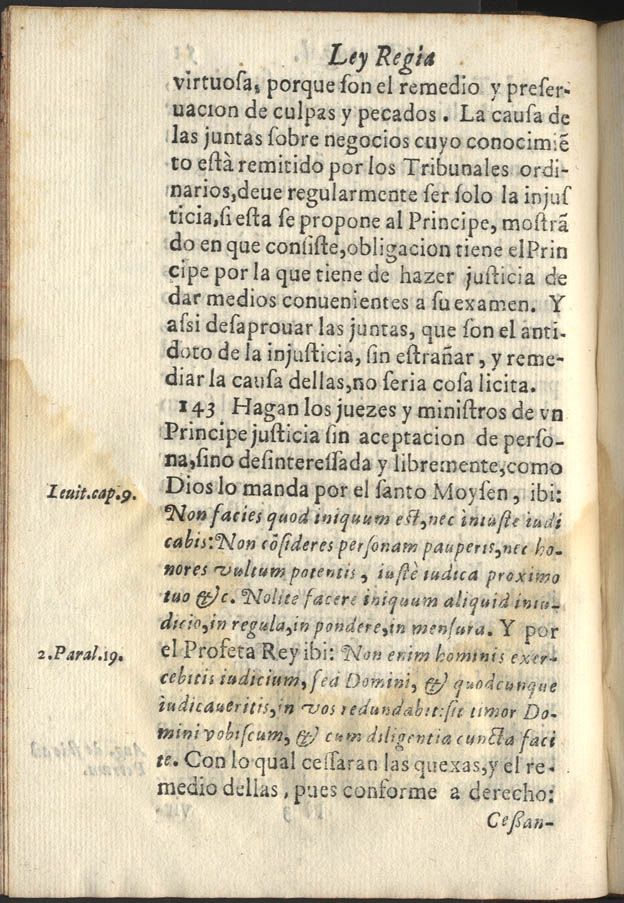 Ley Regia
virtuosa, porque son el remedio y preser-
uacion de culpas y pecados. La causa de
las juntas sobre negocios cuyo conocimiẽ
to està remitido por los Tribunales ordi-
narios, deue regularmente ser solo la injus
ticia, si esta se propone al Principe, mostrã
do en que consiste, obligacion tiene el Prin
cipe por la que tiene de hazer justicia de
dar medios conuenientes a su examen. Y
assi desaprouar las juntas, que son el anti-
doto de la injusticia, sin estrañar, y reme-
diar la causa dellas, no seria cosa licita.
143 Hagan los juezes y ministros de vn
Principe justicia sin aceptacion de perso-
na, sino desinteressada y libremente, como
Leuit.cap.9.
Dios lo manda por el santo Moysen, ibi:
Non facies quod iniquum est, nec iniuste iudi
cabis: Non cõsideres personam pauperis, nec ho-
nores vultum potentis, iustè iudica proximo
tuo &c. Nolite facere iniquum aliquid iniu-
dicio, in regula, in pondere, in mensura. Y por
2.Paral.19.
el Profeta Rey ibi: Non enim hominis exer-
cebitis iudicium, sed Domini, & quodcunque
iudicaueritis, in vos redundabit: sit timor Do-
mini vobiscum, & cum diligentia cuncta faci
te. Con lo qual cessaran las quexas, y el re-
medio dellas, pues conforme a derecho:
Cessan-